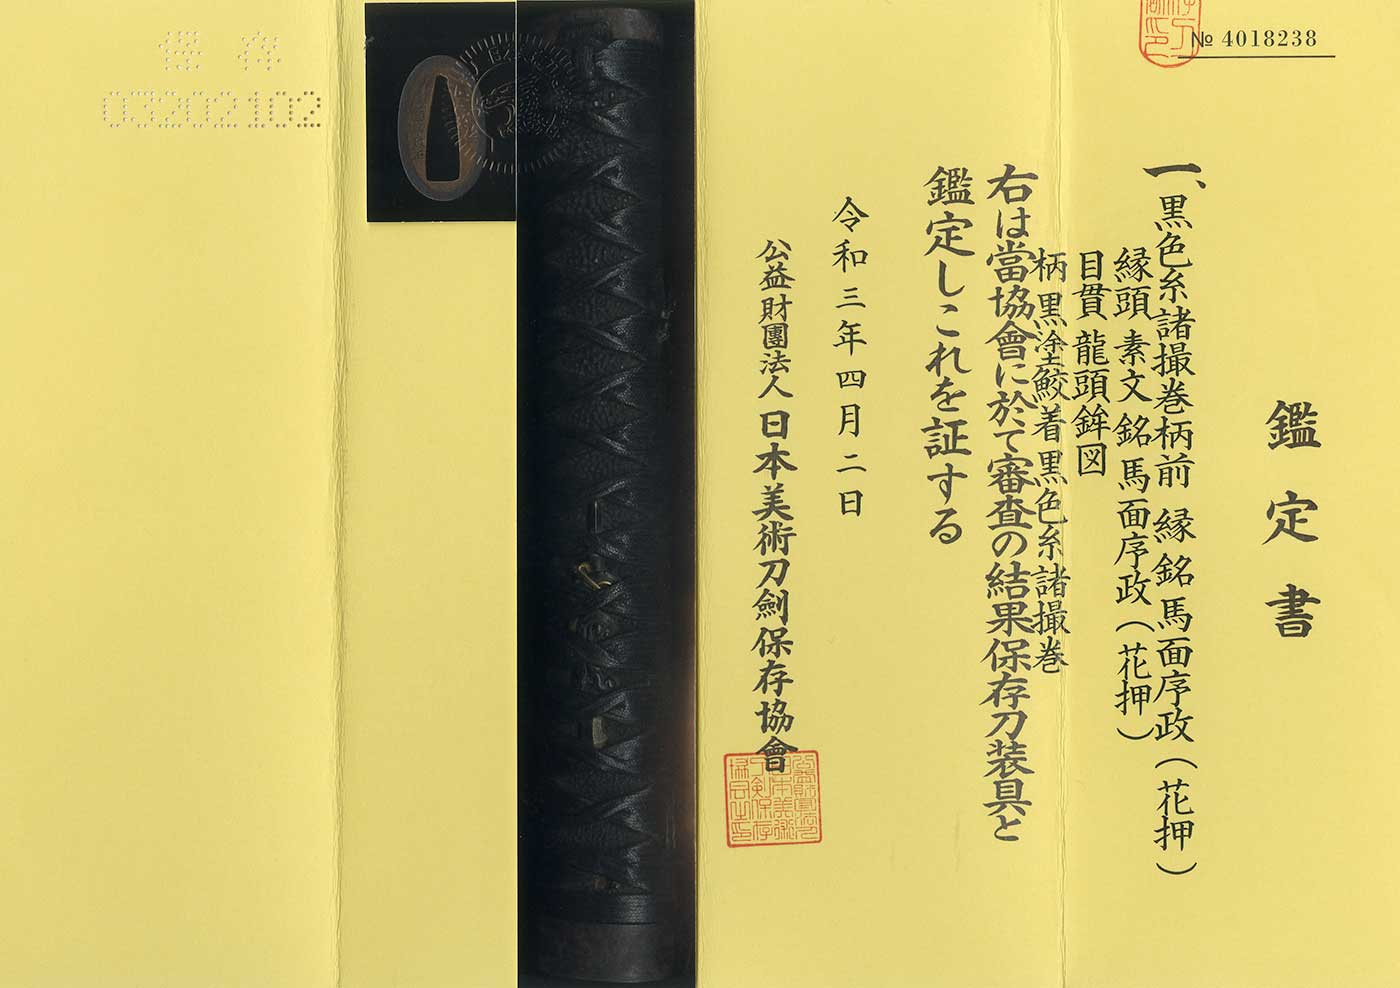 № 4018238
鑑定書
一、黒色糸諸撮巻柄前 縁 銘 馬面序政（花押）
縁頭 素文 銘 馬面序政（花押）
目貫 龍頭鉾図
柄 黒塗鮫着黒色糸諸撮巻
右は當協會に於て審査の結果保存刀装具と
鑑定しこれを証する
令和三年四月二日
公益財團法人 日本美術刀劍保存協會
保存
03202102